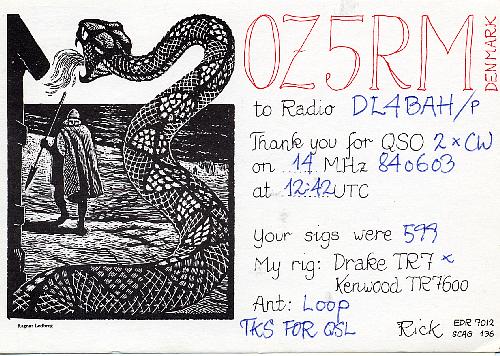 OZ5RM
DENMARK
to Radio DL4BAH/P
Thank you for QSO 2 x CW
on 14 MHz 840603
at 12:42 UTC
Your sigs were 599
My rig: Drake TR7 x
Kenwood TR7600
Ant: Loop
TKS FOR QSL
Rick
EDR 7012
SCAG 136